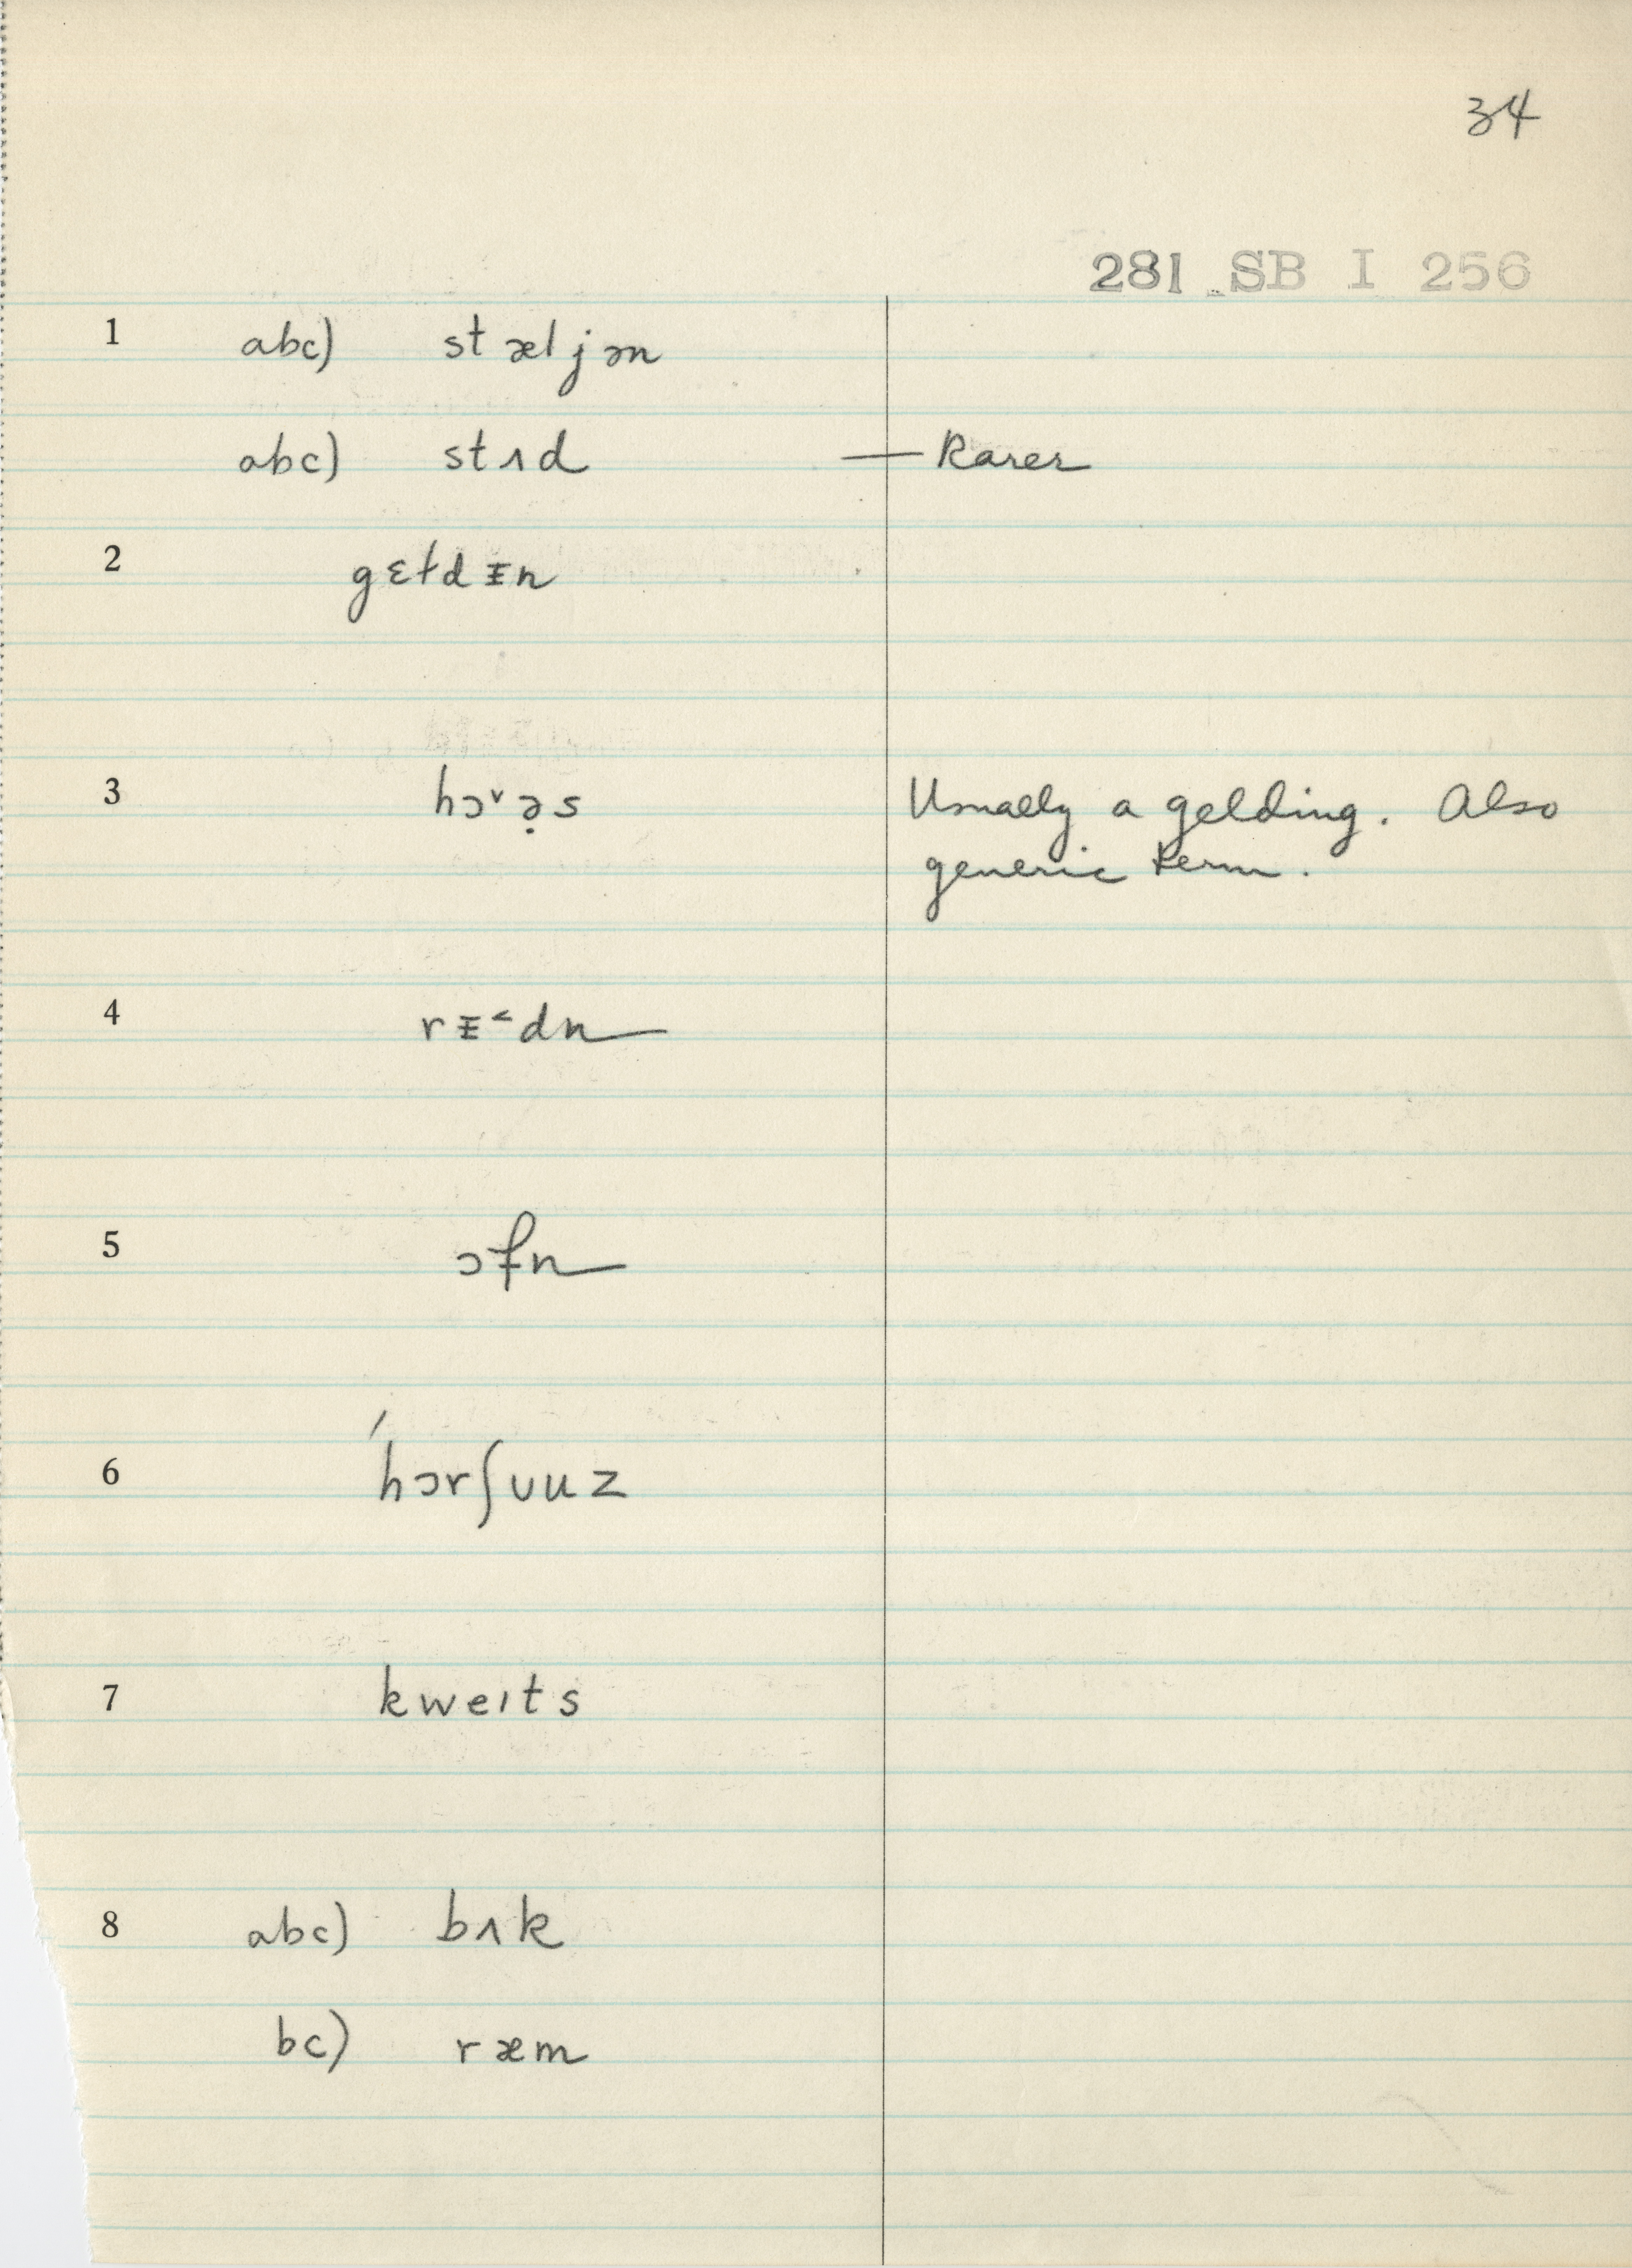 34
281 SB I 256
1 abc) stæljən
abc) stʌd — Rarer
2 gɛɫdᵻn
3 hɔ˅ə̣s Usually a gelding. Also
generic term.
4 rᵻ˂dn
5 ɔfn
6 ́hɔrʃuuz
7 kweɪts
8 abc) bʌk
bc) ræm